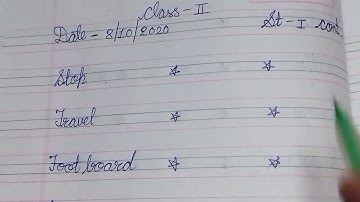 Class - II
Date - 8/10/2020 St - I cont
Stop
Travel
Foot board